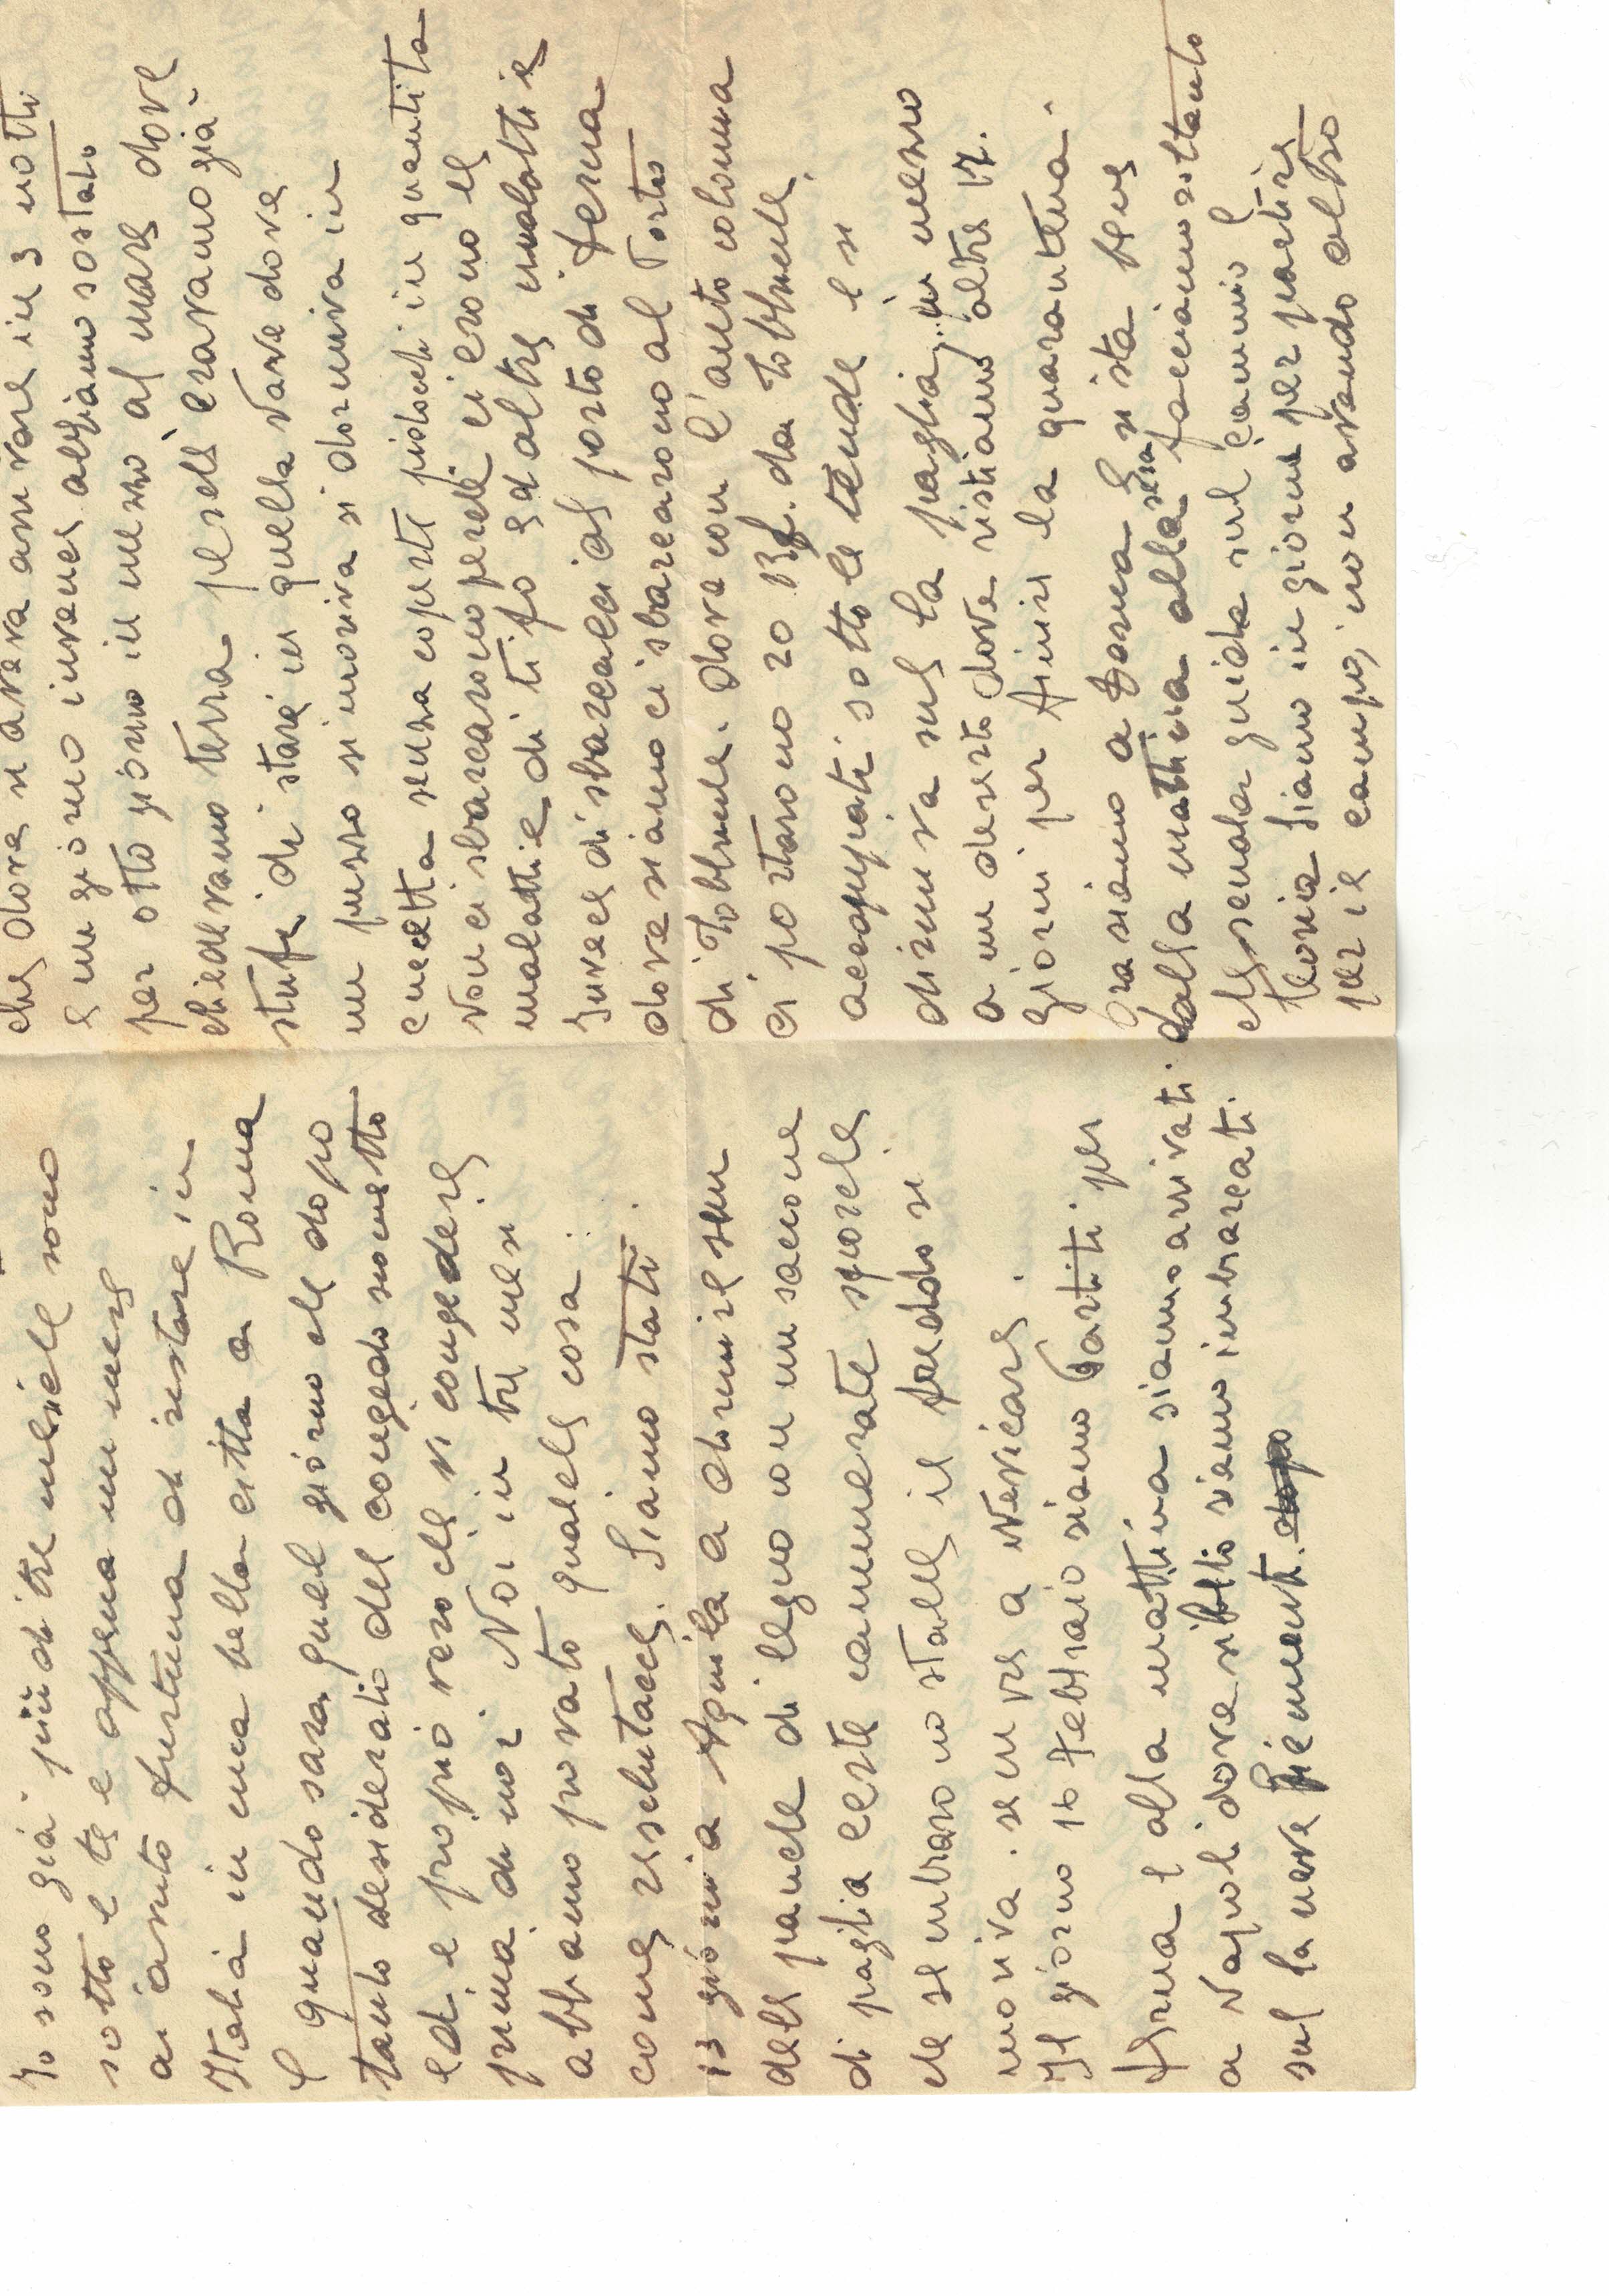 Io sono già più di tre mesi che sono
sotto e te e appena un mese
ai avuto fortuna di restare in
Italia in una bella citta a Roma
e quando sara quel giorno che dopo
tanto desiderato del congedo
ed e propio vero che vi congedere
prima di noi. Noi in tre mesi
abbiamo provato quale cosa
come reselutacce. Siamo stati
13 giorni a Aquila a dormire su
delle pancle di legno con un saccone
di paglia certe cammerate sporche
che sembrano stalle il freddo si
moriva. su vre a Nevicare.
Il giorno 16 febbraio siamo Partiti per
Arma e alla mattina siamo arrivati
a Napoli dove sibbito siamo imbarcati
sul la nave Piemonte. dopo
che dove si aveva arrivare in 3 notti
e un giorno invence abbiamo sostato
per otto giorno in messo al mare dove
chiedevamo terra perche eravamo già
stufi di stare in quella Nave dove
un pusso si moriva si dormiva in
cuccetta senza coperte pidocchi in quantita
Non ci sbarcarono perche ci erono le
malattie di tifo ed altre malattie
Invece di sbarcalci al porto di Aerna
dove siamo ci sbarcarono al Porto
di Tobbruk. dove con l'auto colonna
ci portarono 20 Kl. da Tobbruk.
accoppiati sotto le tende e si
dirmiva sul la paglia in messo
a un deserto dove ristiamo altre 17.
giorni per finire la quarantena.
Ora siamo a Berna e si sta bene
dalla mattina alla sera facciamo soltanto
che scuola guida sul camnio e
teoria Siamo in giorni per partire
per il campo, non avendo altro